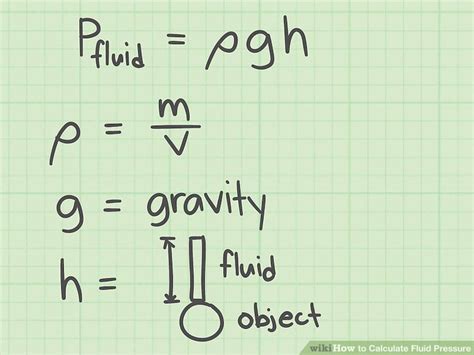 P fluid = ρgh
ρ = m/v
g = gravity
h = fluid
object
wikiHow to Calculate Fluid Pressure